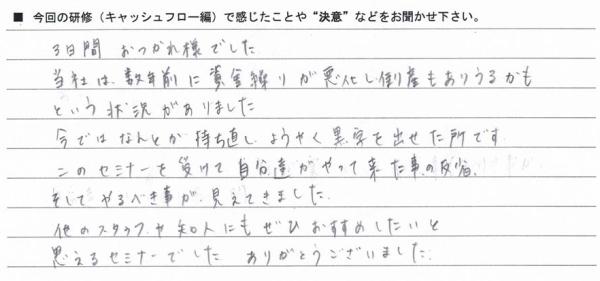 ■ 今回の研修（キャッシュフロー編）で感じたことや“決意”などをお聞かせ下さい。
3日間 おつかれ様でした
当社は、数年前に資金繰りが悪化し倒産もありうるかも
という状況がありました
今ではなんとか持ち直し、ようやく黒字を出せた所です。
このセミナーを受けて自分達がやって来た事の反省、
そしてやるべき事が、見えてきました。
他のスタッフや知人にもぜひおすすめしたいと
思えるセミナーでした ありがとうございました。